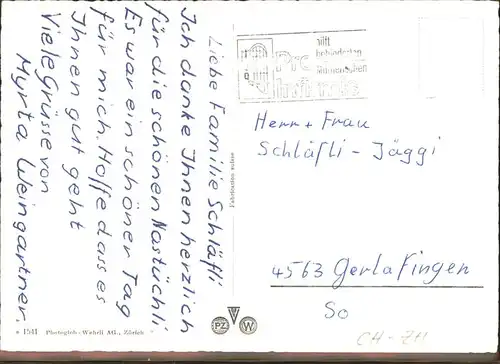 Liebe Familie Schläfli
Ich danke Ihnen herzlich
für die schönen Nastüchli.
Es war ein schöner Tag
für mich. Hoffe dass es
Ihnen gut geht
Viele Grüsse von
Myrta Weingartner.
hilft
behinderten
Menschen
Pro
Infirmis
Herr + Frau
Schläfli - Jäggi
4563 Gerlafingen
So
CH-ZH
Fabrication suisse
1541 Photoglob-Wehrli AG., Zürich
PZ W